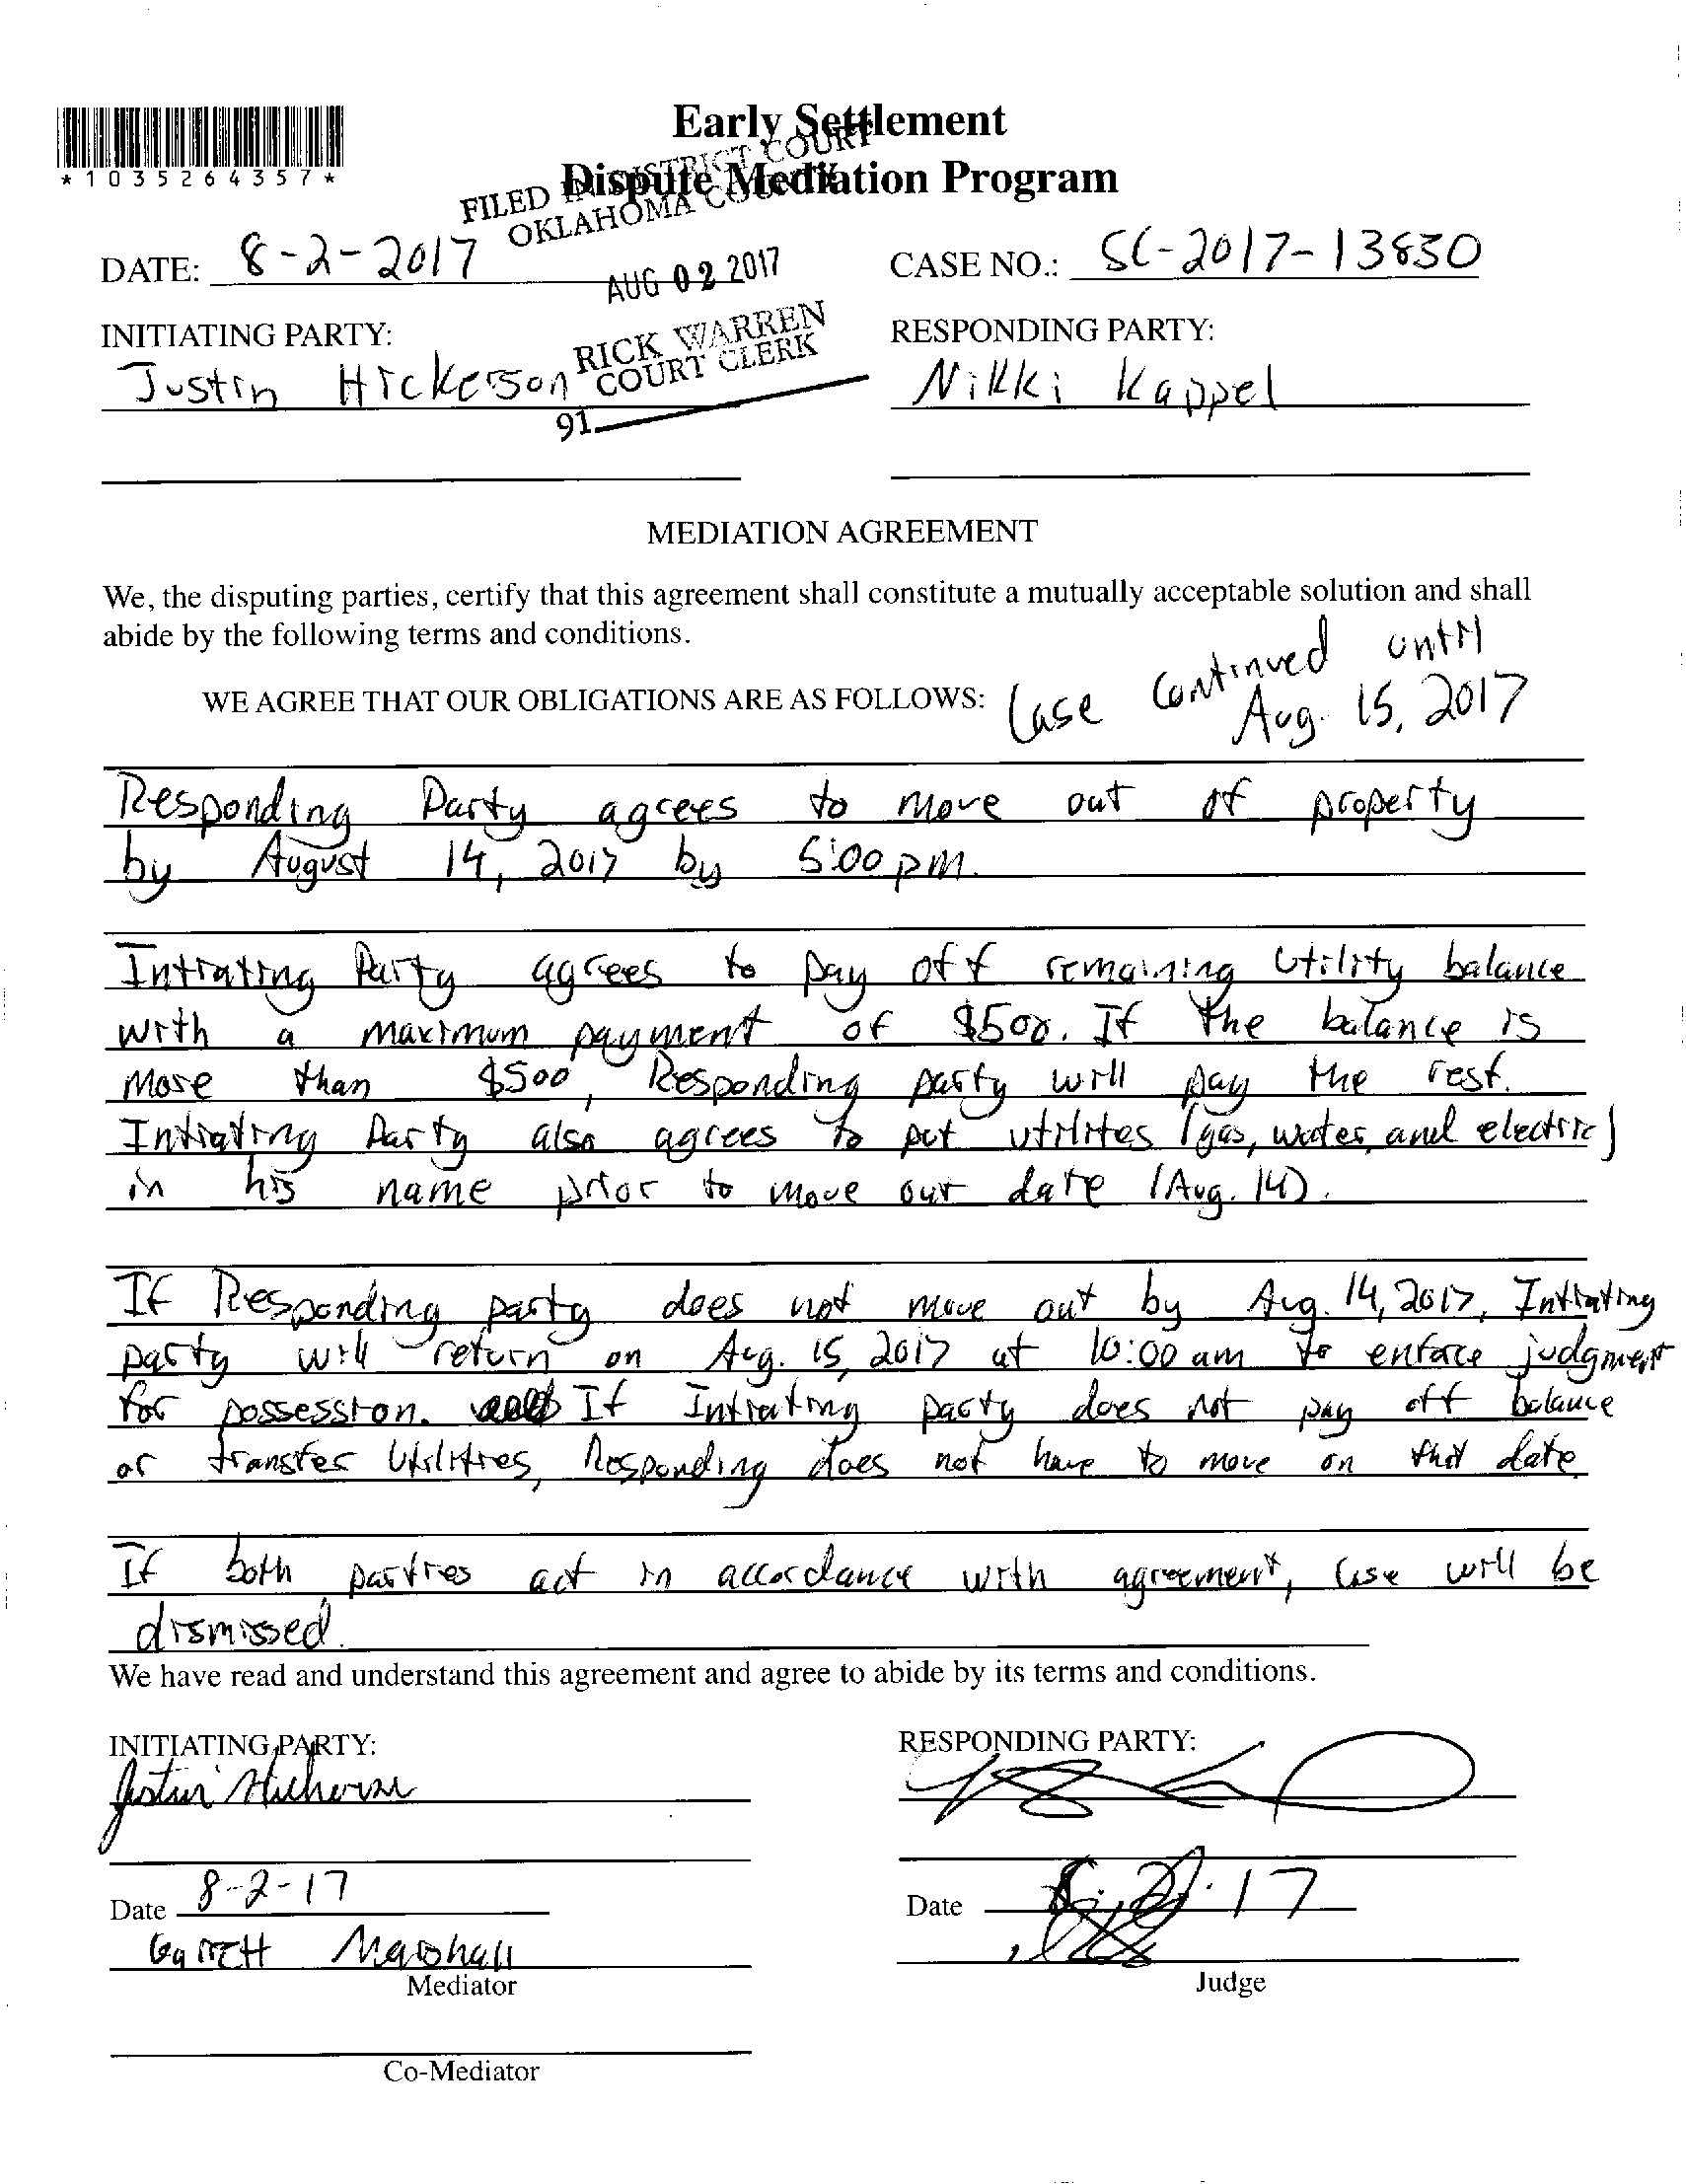 Early Settlement
Dispute Mediation Program
*1035264357*
FILED IN DISTRICT COURT
OKLAHOMA COUNTY
DATE: 8-2-2017
AUG 02 2017
CASE NO.: SC-2017-13830
INITIATING PARTY:
RICK WARREN
COURT CLERK
RESPONDING PARTY:
Justin Hickerson
Nikki Kappel
91
MEDIATION AGREEMENT
We, the disputing parties, certify that this agreement shall constitute a mutually acceptable solution and shall
abide by the following terms and conditions.
WE AGREE THAT OUR OBLIGATIONS ARE AS FOLLOWS: Case continued until
Aug. 15, 2017
Responding Party agrees to move out of property
by August 14, 2017 by 5:00 pm.
Initiating Party agrees to pay off remaining utility balance
with a maximum payment of $500. If the balance is
more than $500, Responding party will pay the rest.
Initiating Party also agrees to put utilities (gas, water, and electric)
in his name prior to move out date (Aug. 14).
If Responding party does not move out by Aug. 14, 2017, Initiating
party will return on Aug. 15, 2017 at 10:00 am to enforce judgment
for possession. If Initiating party does not pay off balance
or transfer utilities, Responding does not have to move on that date.
If both parties act in accordance with agreement, case will be
dismissed.
We have read and understand this agreement and agree to abide by its terms and conditions.
INITIATING PARTY:
RESPONDING PARTY:
Justin Hickerson
Date 8-2-17
Date 8.2.17
Garrett Marshall
Mediator
Judge
Co-Mediator